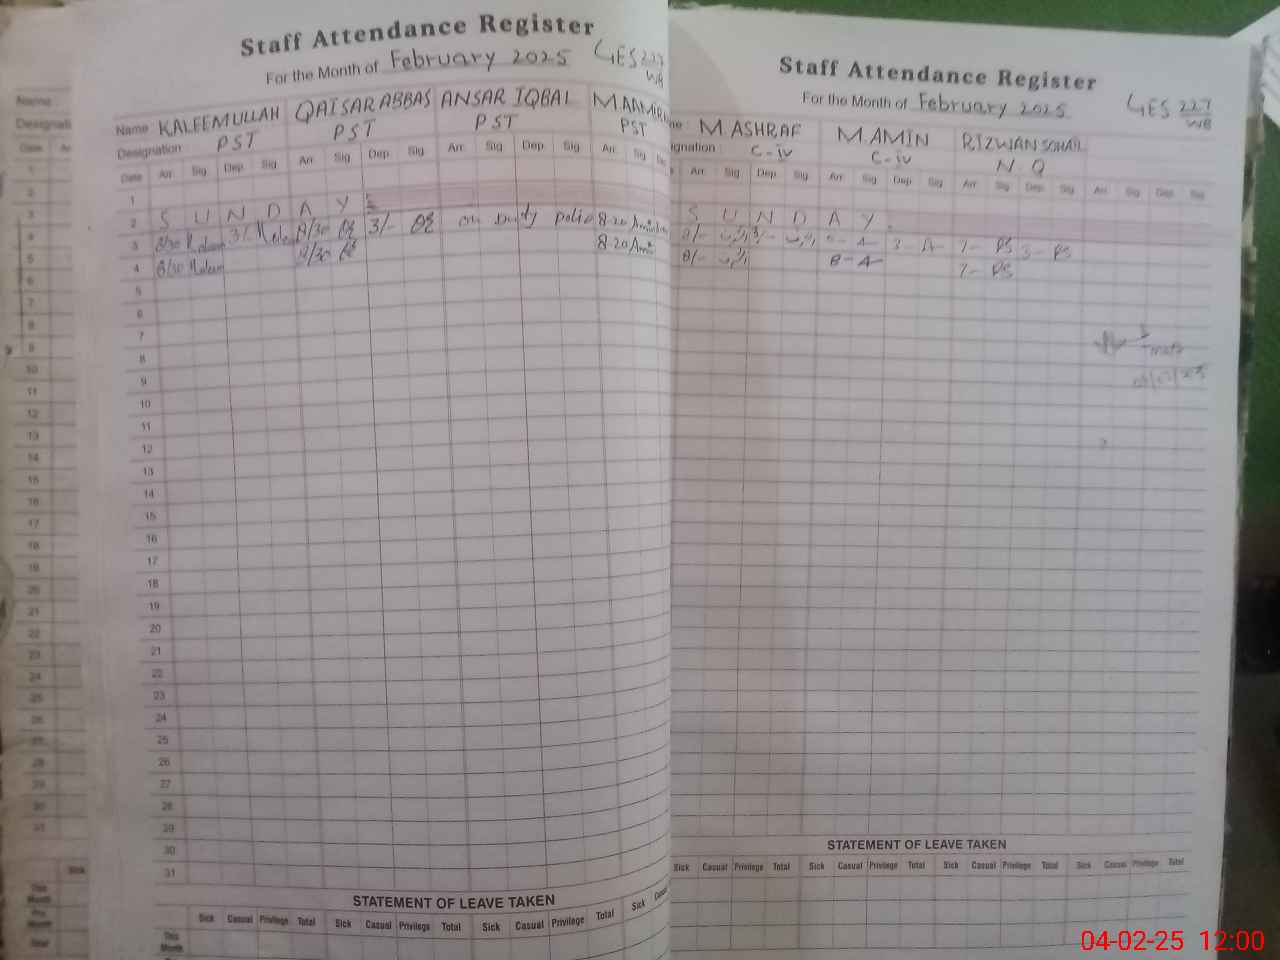 Staff Attendance Register
For the Month of February 2025 GES 227
WB
Name KALEEMULLAH QAISAR ABBAS ANSAR IQBAL M.AAMIR
Designation PST PST PST PST
Date Arr. Sig Dep. Sig Arr. Sig Dep. Sig Arr. Sig Dep. Sig Arr. Sig
1
2 S U N D A Y
3 8/30 Kaleem 3/ Kaleem 8/30 3/- on Duty polio 8.20
4 8/30 Kaleem 8/30 8.20
5
6
7
8
9
10
11
12
13
14
15
16
17
18
19
20
21
22
23
24
25
26
27
28
29
30
31
STATEMENT OF LEAVE TAKEN
Sick Casual Privilege Total Sick Casual Privilege Total Sick Casual Privilege Total Sick
This Month
Staff Attendance Register
For the Month of February 2025 GES 227
WB
M.ASHRAF M.AMIN RIZWAN SOHAIL
C-iv C-iv N.Q
Arr. Sig Dep. Sig Arr. Sig Dep. Sig Arr. Sig Dep. Sig Arr. Sig Dep. Sig
S U N D A Y
8/- 3 A 7- RS 3- RS
8/- 8- A 7- RS
STATEMENT OF LEAVE TAKEN
Sick Casual Privilege Total Sick Casual Privilege Total Sick Casual Privilege Total Sick Casual Privilege Total
04-02-25 12:00